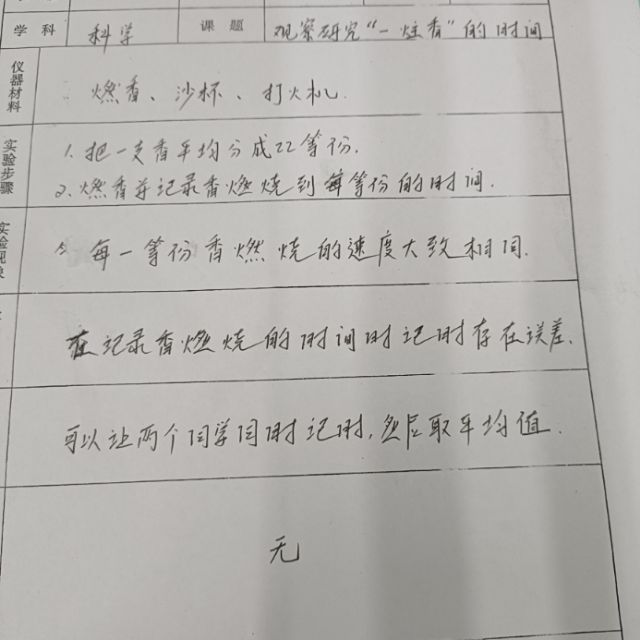 学科 科学 课题 观察研究“一炷香”的时间
仪器材料 燃香、沙杯、打火机.
实验步骤 1、把一支香平均分成22等份.
2、燃香并记录香燃烧到每等份的时间.
实验现象 每一等份香燃烧的速度大致相同.
在记录香燃烧的时间时记时存在误差.
可以让两个同学同时记时,然后取平均值.
无